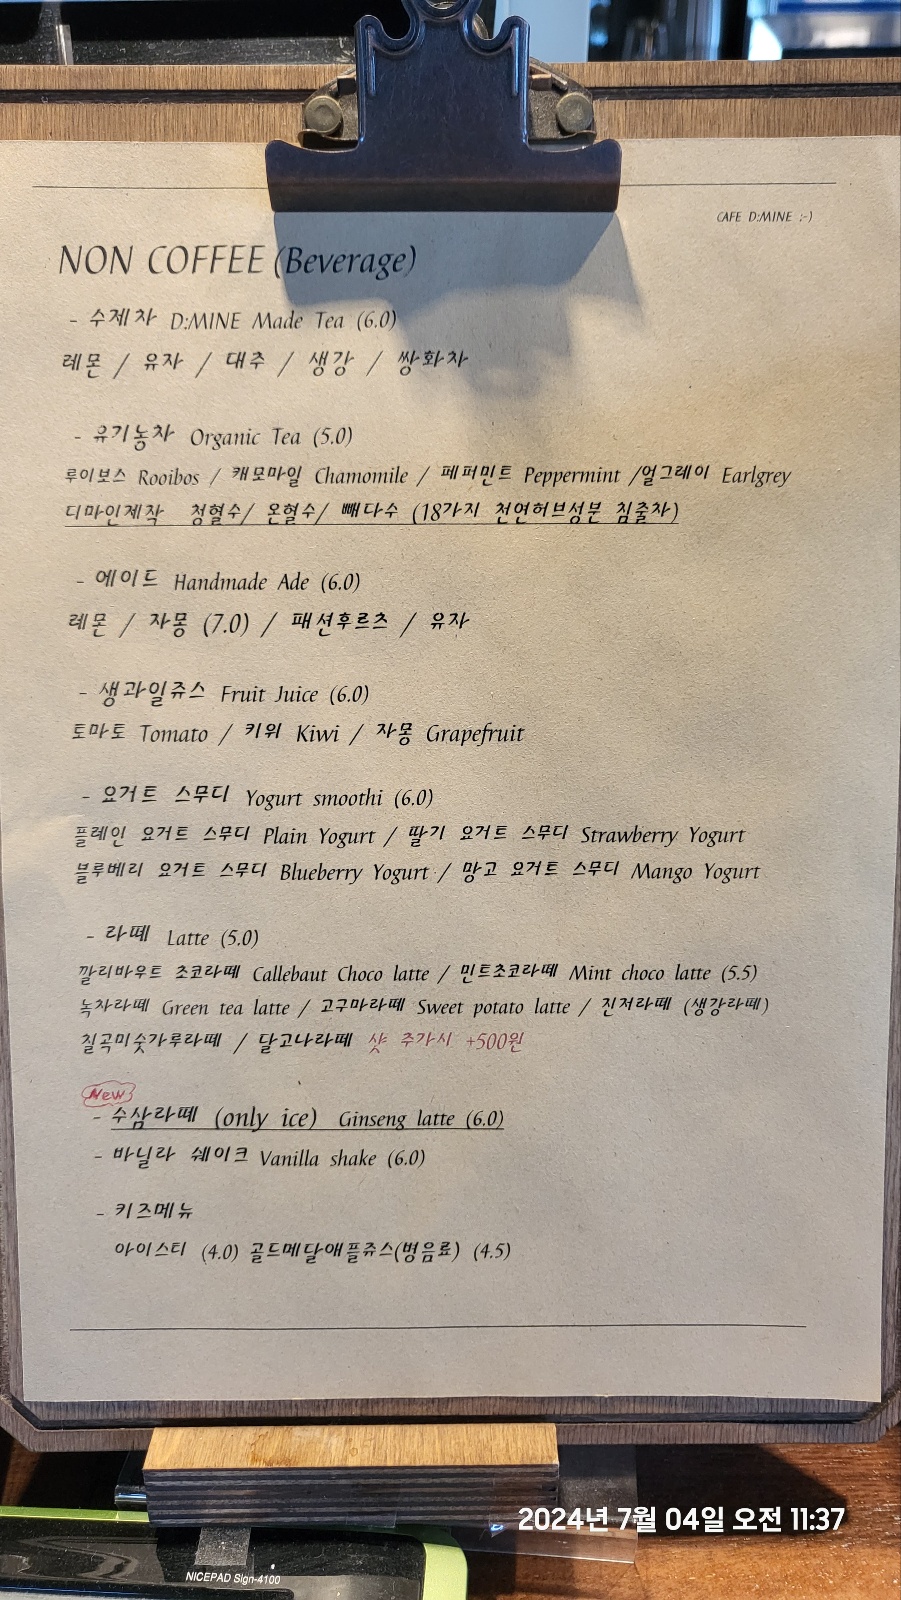 CAFE D:MINE ;-)
NON COFFEE (Beverage)
- 수제차 D:MINE Made Tea (6.0)
레몬 / 유자 / 대추 / 생강 / 쌍화차
- 유기농차 Organic Tea (5.0)
루이보스 Rooibos / 캐모마일 Chamomile / 페퍼민트 Peppermint /얼그레이 Earlgrey
디마인제작 청혈수/ 온혈수/ 빼다수 (18가지 천연허브성분 침출차)
- 에이드 Handmade Ade (6.0)
레몬 / 자몽 (7.0) / 패션후르츠 / 유자
- 생과일쥬스 Fruit Juice (6.0)
토마토 Tomato / 키위 Kiwi / 자몽 Grapefruit
- 요거트 스무디 Yogurt smoothi (6.0)
플레인 요거트 스무디 Plain Yogurt / 딸기 요거트 스무디 Strawberry Yogurt
블루베리 요거트 스무디 Blueberry Yogurt / 망고 요거트 스무디 Mango Yogurt
- 라떼 Latte (5.0)
깔리바우트 초코라떼 Callebaut Choco latte / 민트초코라떼 Mint choco latte (5.5)
녹차라떼 Green tea latte / 고구마라떼 Sweet potato latte / 진저라떼 (생강라떼)
칠곡미숫가루라떼 / 달고나라떼 샷 추가시 +500원
New
- 수삼라떼 (only ice) Ginseng latte (6.0)
- 바닐라 쉐이크 Vanilla shake (6.0)
- 키즈메뉴
아이스티 (4.0) 골드메달애플쥬스(병음료) (4.5)
2024년 7월 04일 오전 11:37
NICEPAD Sign-4100